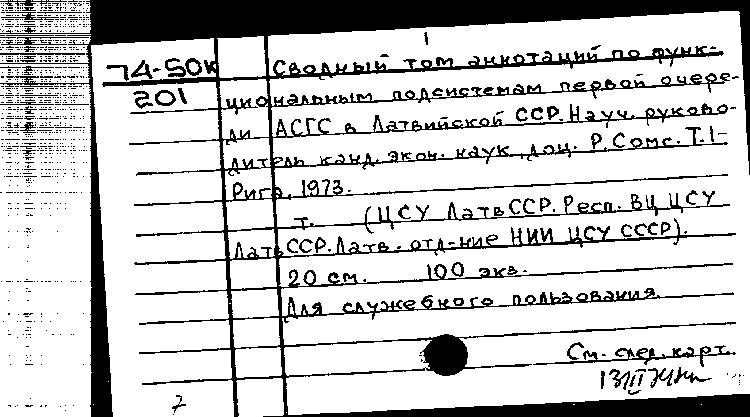 1
74-50к Сводный том аннотаций по функ-
201 циональным подсистемам первой очере-
ди АСГС в Латвийской ССР. Науч. руково-
дитель канд. экон. наук, доц. Р. Сомс. Т. 1-
Рига, 1973.
т. (ЦСУ ЛатвССР. Респ. ВЦ ЦСУ
ЛатвССР. Латв. отд-ние НИИ ЦСУ СССР).
20 см. 100 экз.
Для служебного пользования.
См. след. карт.
7